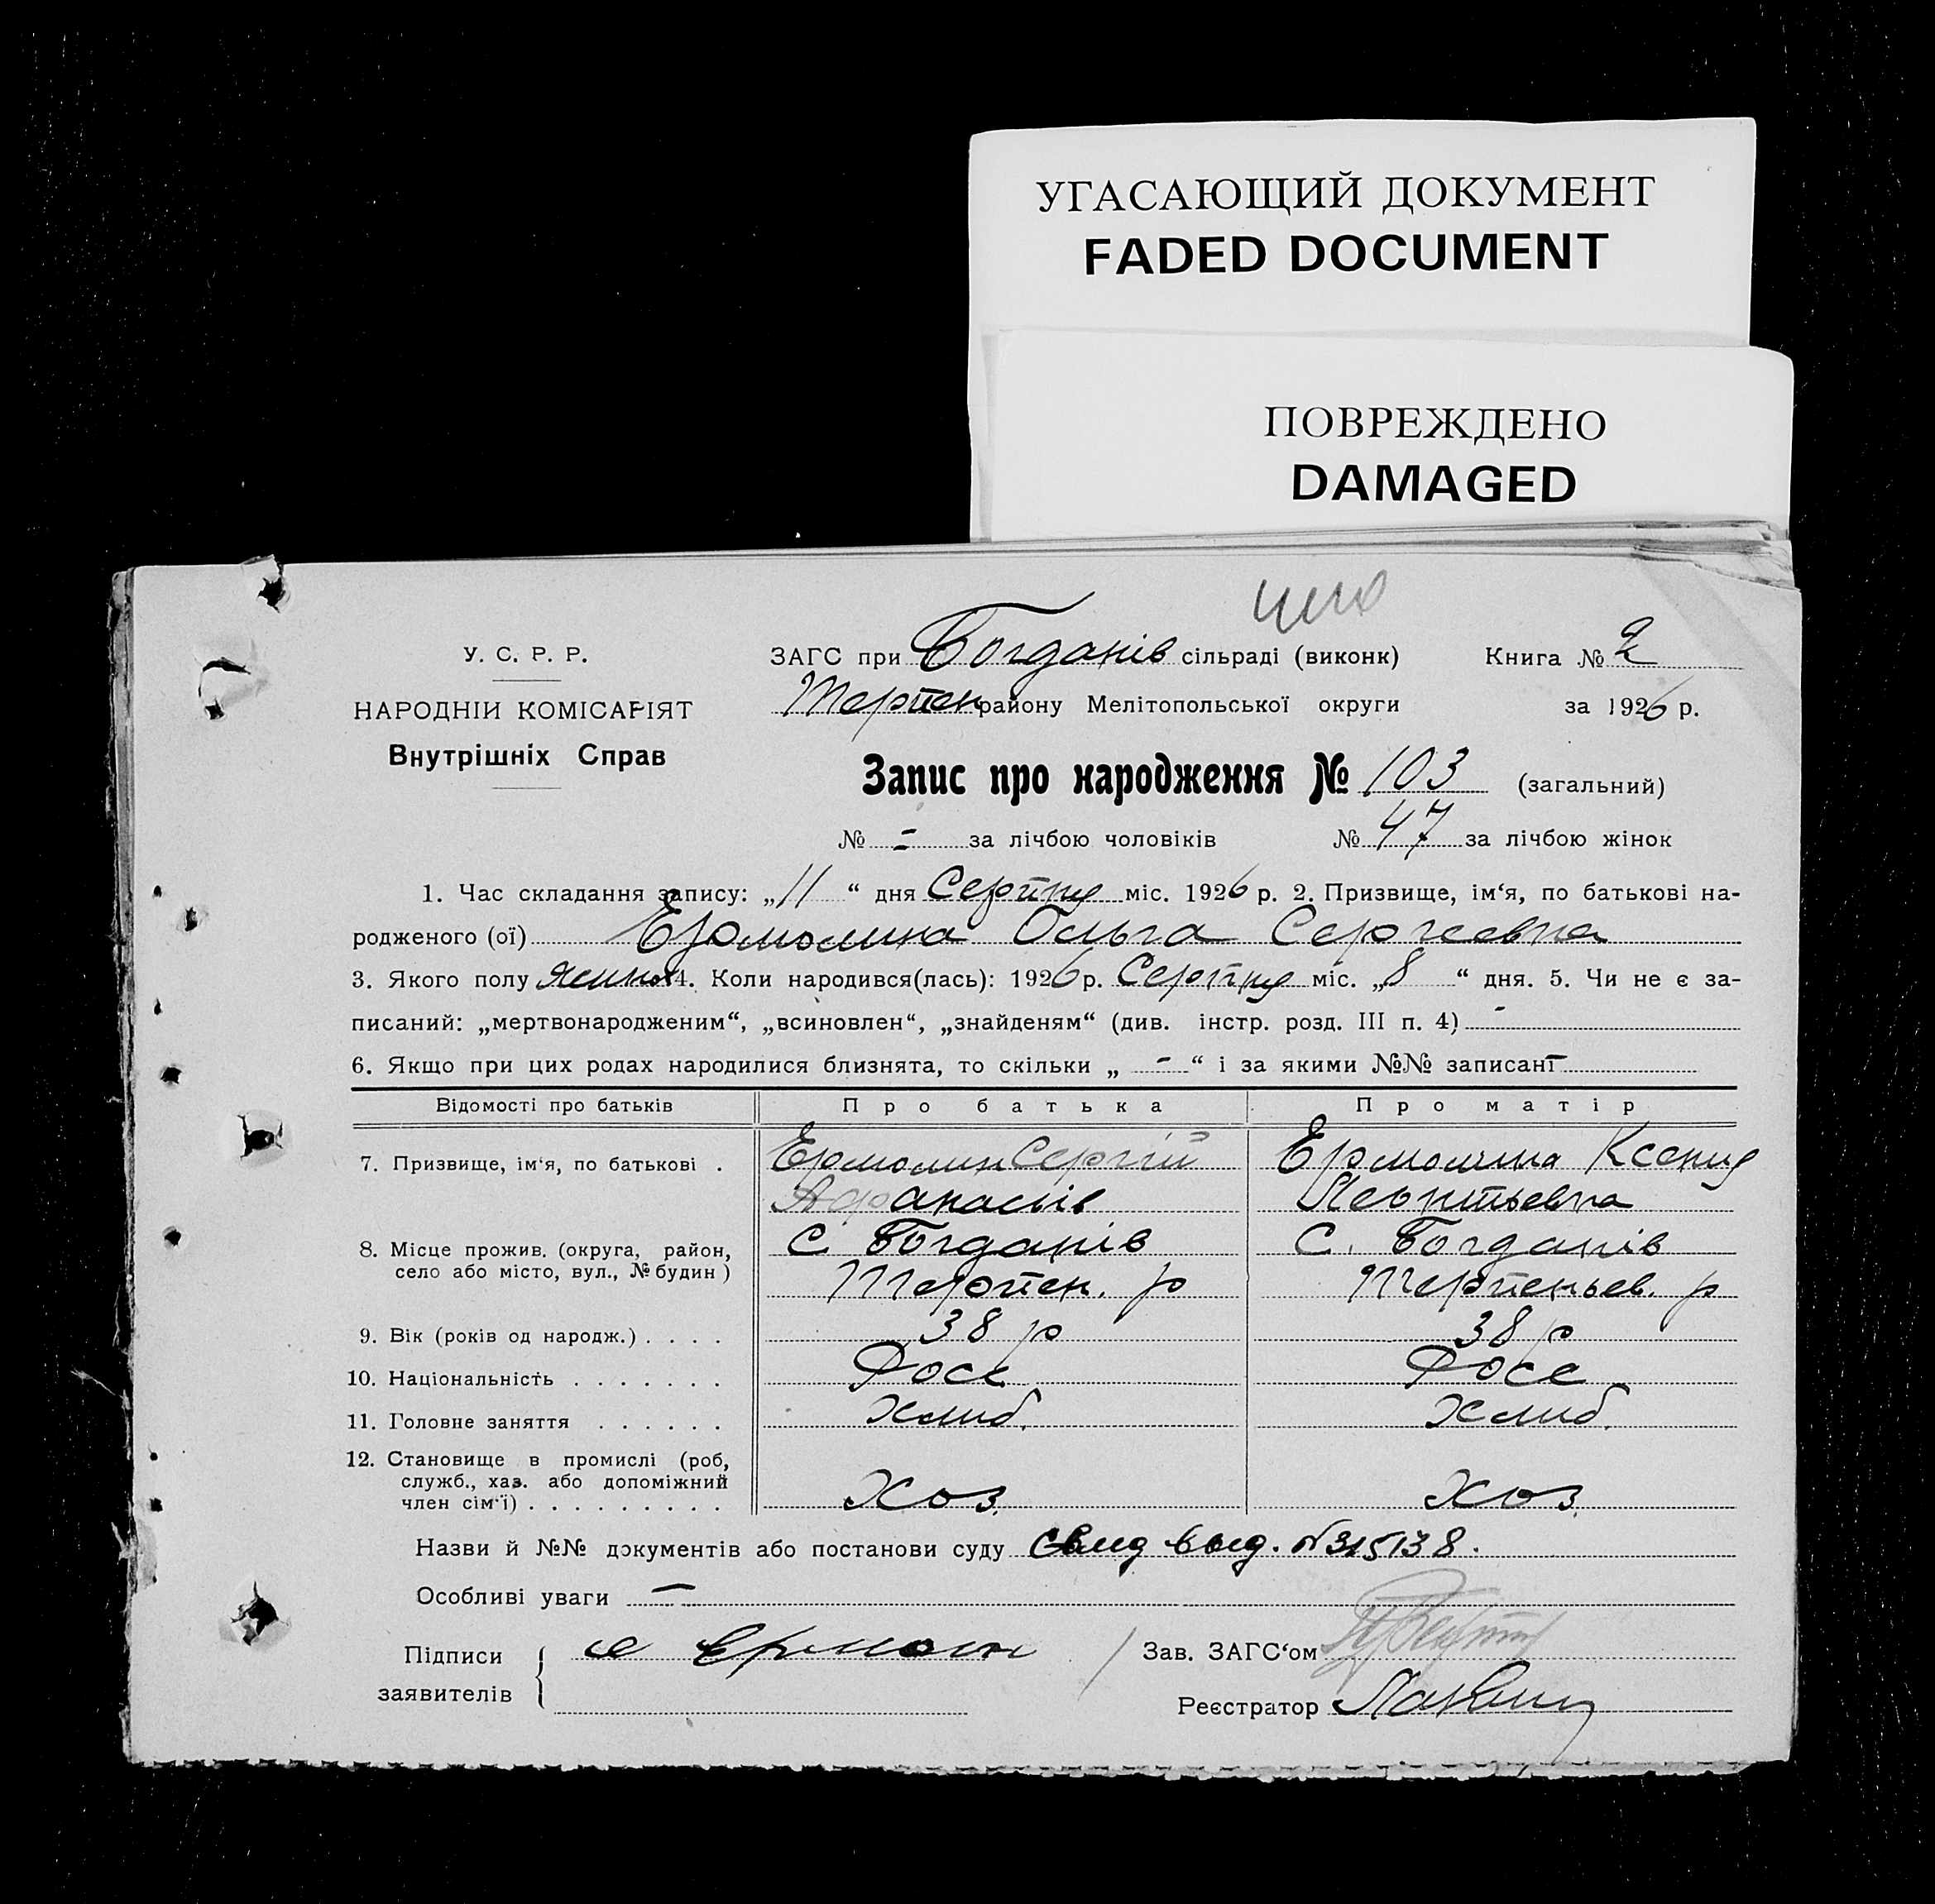 УГАСАЮЩИЙ ДОКУМЕНТ
FADED DOCUMENT
ПОВРЕЖДЕНО
DAMAGED
У. С. Р. Р.
НАРОДНІЙ КОМІСАРІЯТ
Внутрішніх Справ
ЗАГС при Богданів сільраді (виконк) Книга № 2
Терпен району Мелітопольської округи за 1926 р.
Запис про народження № 103 (загальний)
№ - за лічбою чоловіків № 47 за лічбою жінок
1. Час складання запису: „11“ дня Серпну міс. 1926 р. 2. Призвище, ім‘я, по батькові на-
родженого (ої) Ермолина Ольга Сергеевна
3. Якого полу 4. Коли народився(лась): 1926 р. Серпну міс. „8“ дня. 5. Чи не є за-
писаний: „мертвонародженим“, „всиновлен“, „знайденям“ (див. інстр. розд. III п. 4) -
6. Якщо при цих родах народилися близнята, то скільки „ - “ і за якими №№ записані -
Відомості про батьків Про батька Про матір
7. Призвище, ім‘я, по батькові . Ермолин Сергій Ермолина Ксения
Афанасьів Леонтьевна
8. Місце прожив. (округа, район, С. Богданів С. Богданів
село або місто, вул., № будин ) Терпен. р Терпеньев. р
9. Вік (років од народж.) . . . . 38 р 38 р
10. Національність . . . . . . . Росс Росс
11. Головне заняття . . . . . . Хлиб. Хлиб.
12. Становище в промислі (роб,
служб., хаз. або допоміжний
член сім‘ї) . . . . . . . . . Хоз. Хоз.
Назви й №№ документів або постанови суду Свид выд. №315138.
Особливі уваги —
Підписи Зав. ЗАГС‘ом
заявителів
Реєстратор